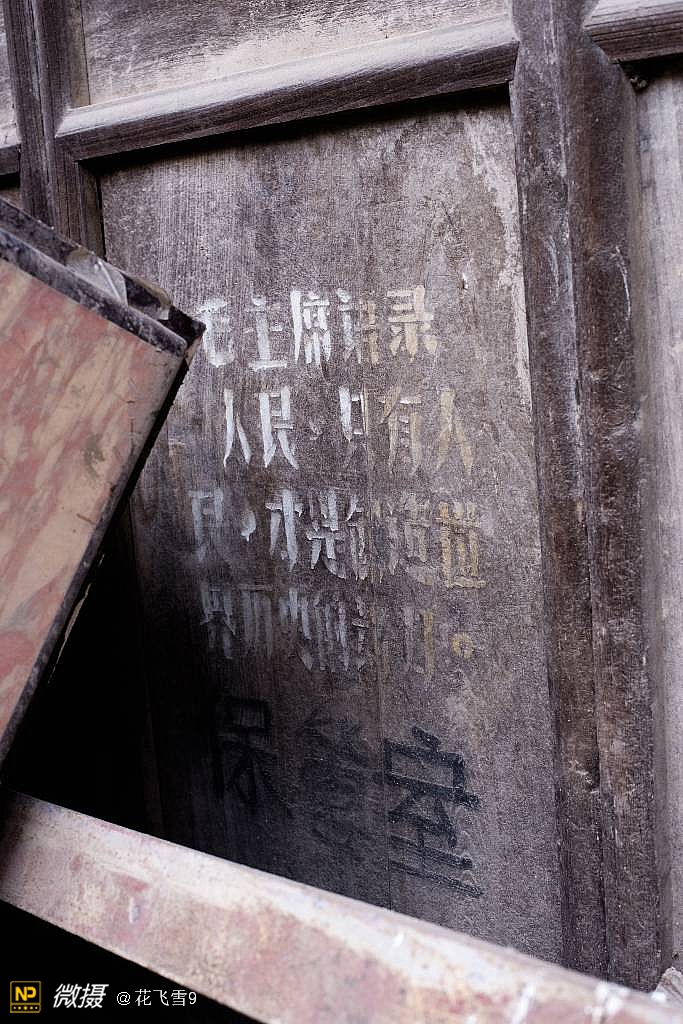 毛主席语录
人民，只有人
民，才是创造世
界历史的动力。
保管室
NP 微摄 @花飞雪9